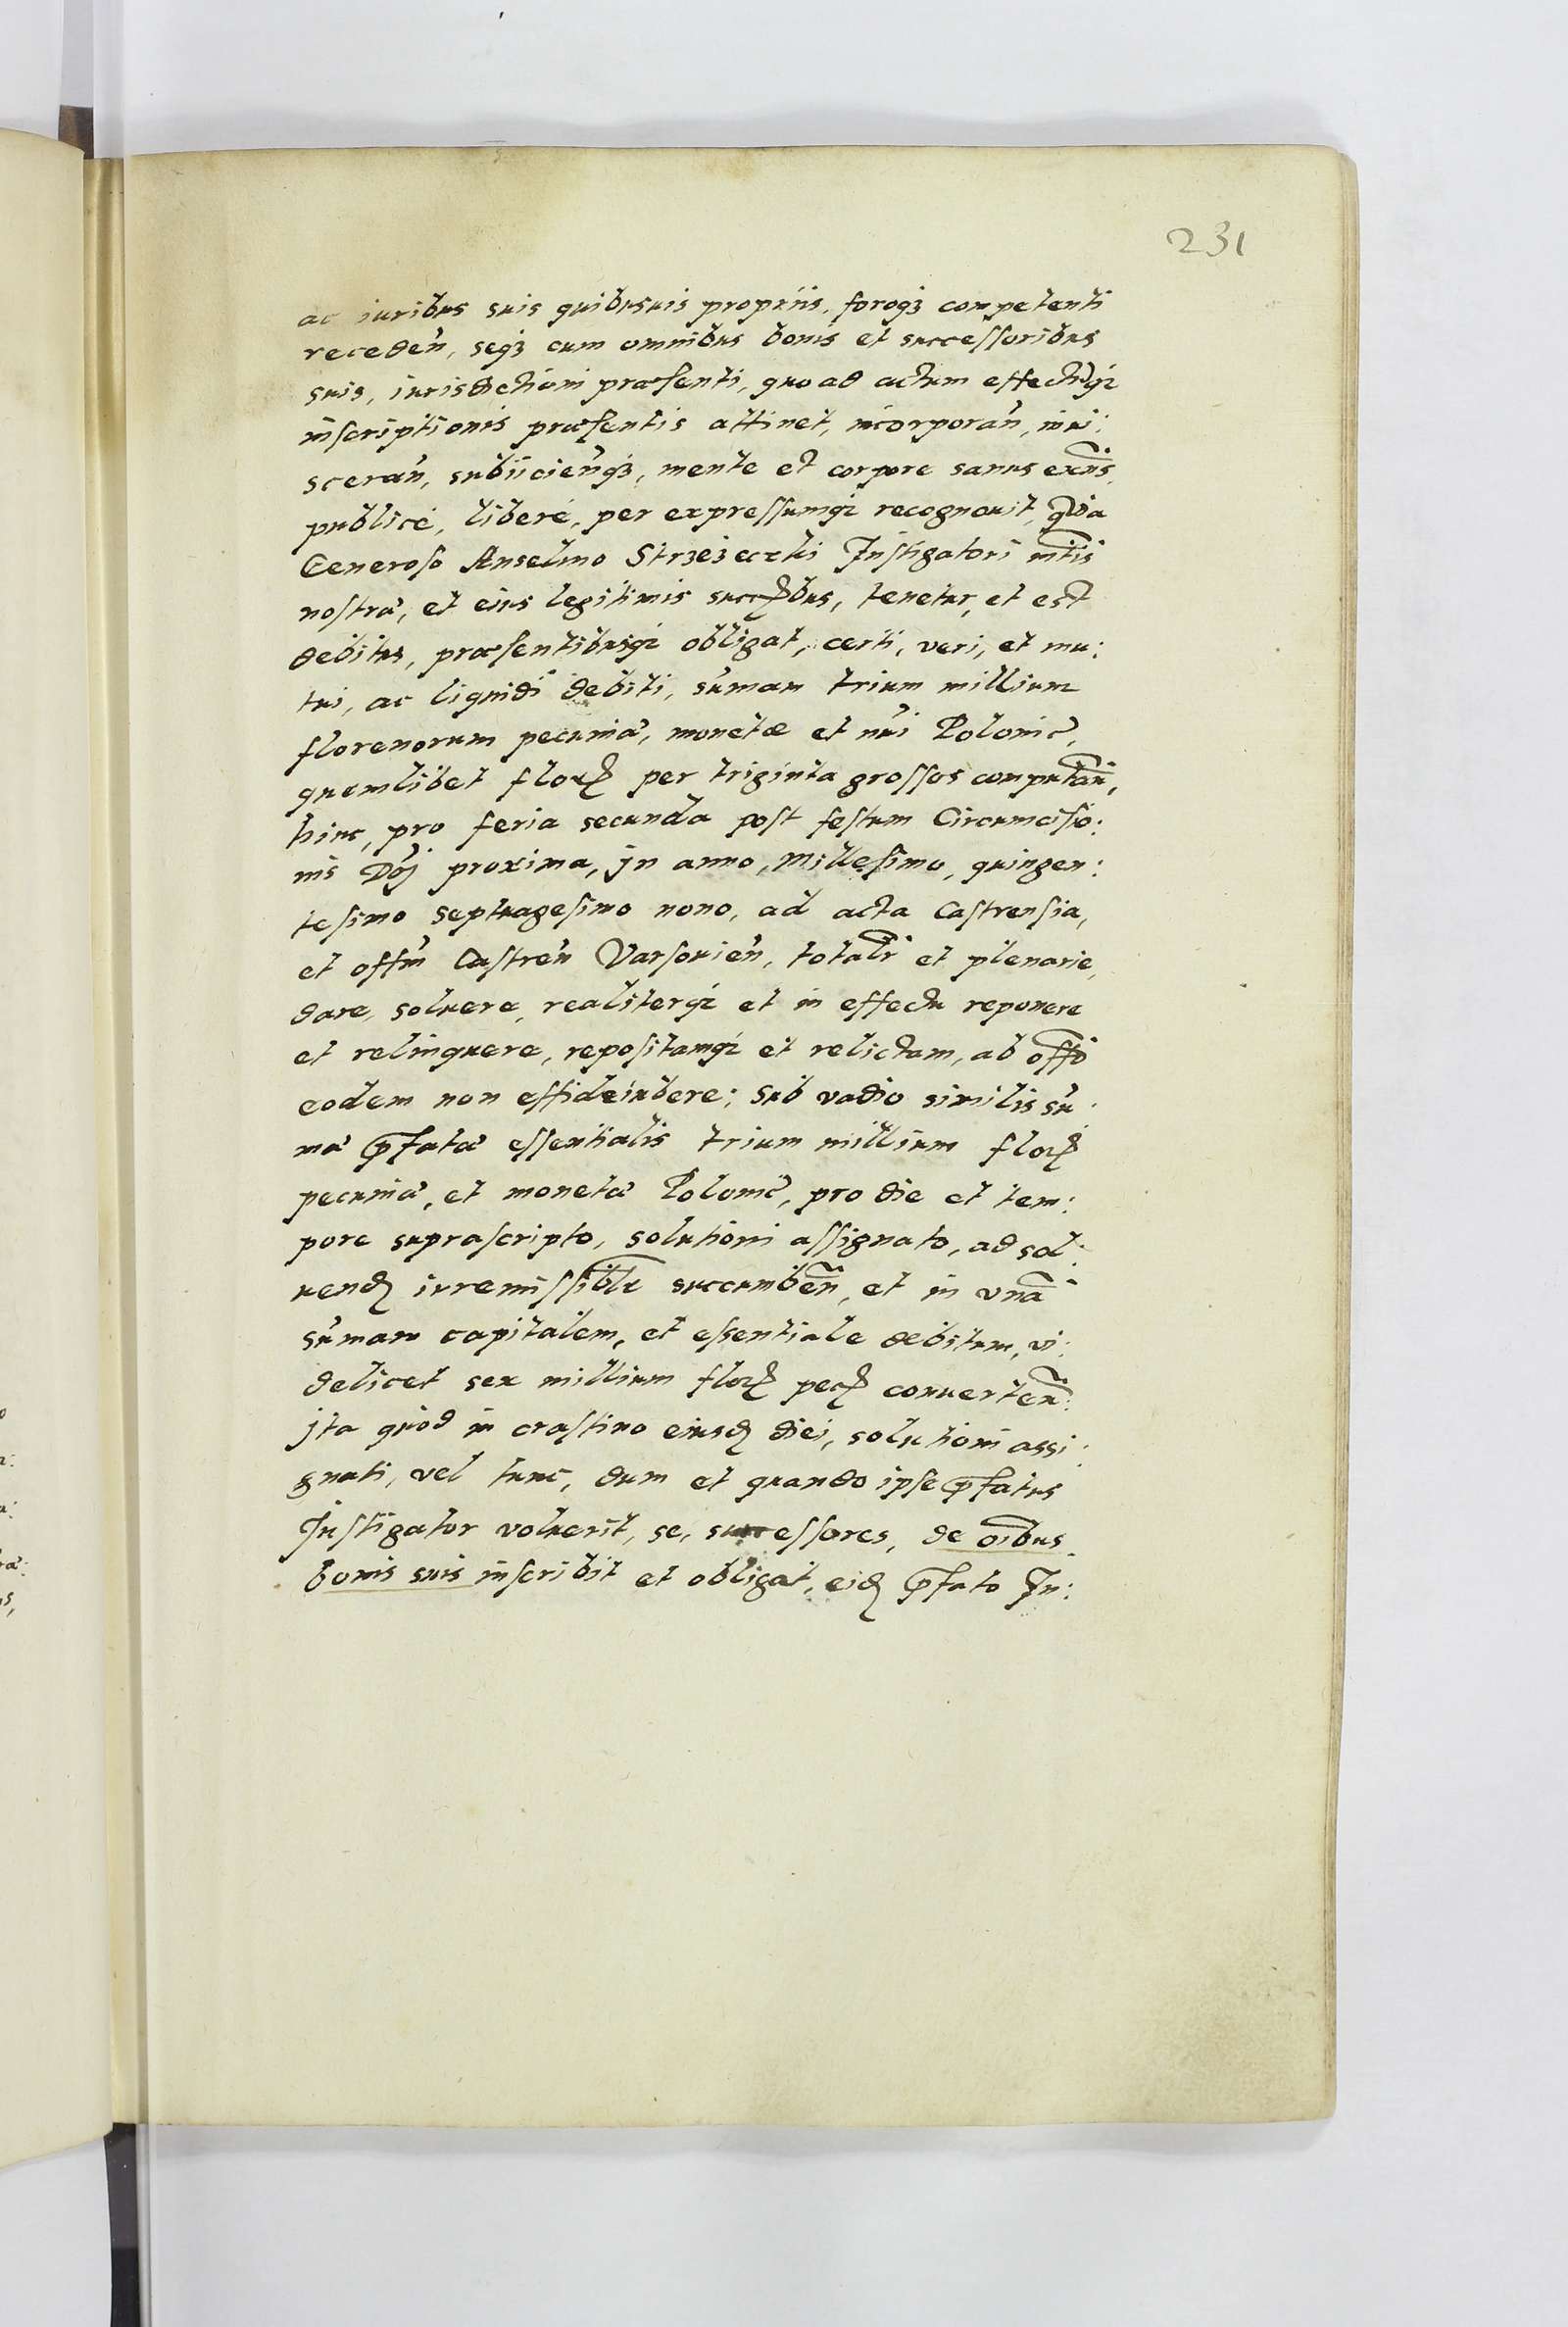 231
ac iuribus suis quibusuis propriis, foroqȝ competenti
receden̄, seqȝ cum omnibus bonis et successoribus
suis, iurisdictioni præsenti, quo ad actum effectūqȝ
inscriptionis præsentis attinet, incorporan̄, inui:
sceran̄, subiicien̄qȝ, mente et corpore sanus exn̄s,
publicé, liberé, per expressumqȝ recognouit, quia
Generoso Anselmo Strzeżeczki Instigatori mt̄is
nostræ, et eius legitimis succꝭbus, tenetur, et est
debitus, præsentibusqȝ obligat, certi, veri, et mu:
tui, ac liquidi debiti, sūmam trium millium
florenorum pecuniæ, monetæ et nūi Polonic̄,
quemlibet florꝭ per triginta grossos computan̄,
hinc, pro feria secunda post festum Circumcisio:
nis Dn̄j proxima, jn anno, Millesimo, quingen:
tesimo septuagesimo nono, ad acta Castrensia,
et offm̄ Castren̄ Varsouien̄, totalr̄ et plenarie,
dare, soluere, realiterqȝ et in effectu reponere
et relinquere, repositamqȝ et relictam, ab offō
eodem non effideiubere; sub vadio similis sū:
mæ p̄fatæ essentialis trium millium florꝭ
pecuniæ, et monetæ Polonic̄, pro die et tem:
pore suprascripto, solutioni assignato, ad sol:
uendꝭ irremissiblr̄ succumben̄, et in vnā
sūmam capitalem, et essentiale debitum, vi:
delicet sex millium florꝭ pecꝭ conuerten̄:
jta quòd in crastino eiusdꝭ diei, solutioni assi:
gnati, vel tunc, dum et quando ipse p̄fatus
Instigator voluerit, se, successores, de oībus
bonis suis inscribit et obligat, eidꝭ p̄fato In: